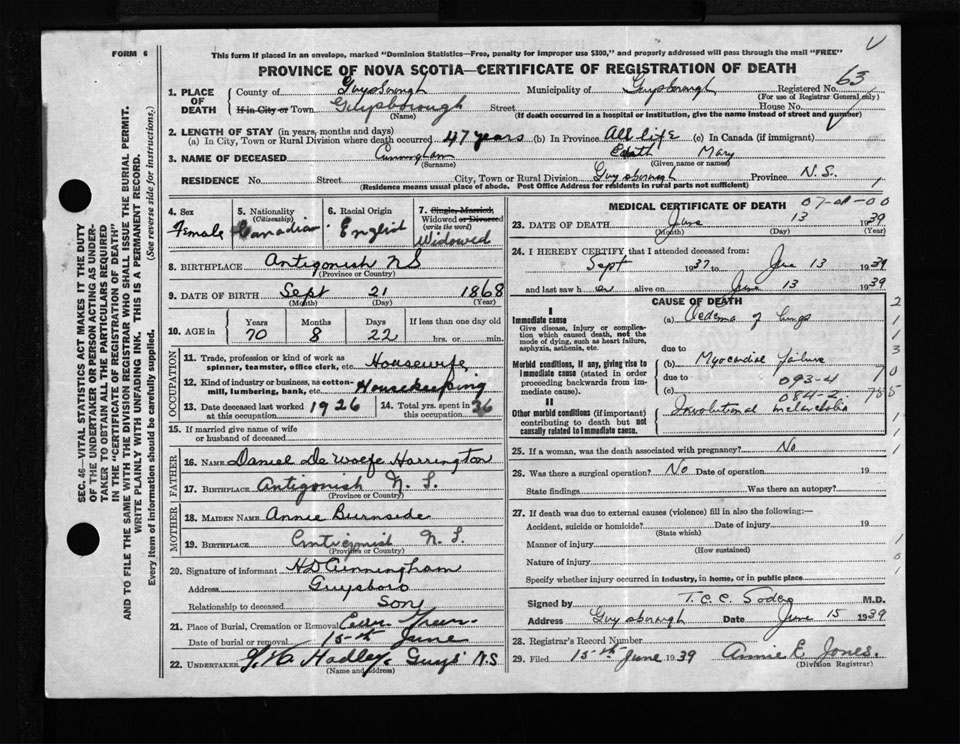 FORM 6
This form if placed in an envelope, marked "Dominion Statistics—Free, penalty for improper use $300," and properly addressed will pass through the mail "FREE"
PROVINCE OF NOVA SCOTIA—CERTIFICATE OF REGISTRATION OF DEATH
SEC. 46—VITAL STATISTICS ACT MAKES IT THE DUTY
OF THE UNDERTAKER OR PERSON ACTING AS UNDER-
TAKER TO OBTAIN ALL THE PARTICULARS REQUIRED
IN THE "CERTIFICATE OF REGISTRATION OF DEATH"
AND TO FILE THE SAME WITH THE DIVISION REGISTRAR WHO SHALL ISSUE THE BURIAL PERMIT.
WRITE PLAINLY WITH UNFADING INK. THIS IS A PERMANENT RECORD.
Every item of information should be carefully supplied. (See reverse side for instructions.)
1. PLACE OF DEATH
County of Guysborough Municipality of Guysborough Registered No. 63
(For use of Registrar General only)
If in City or Town Guysborough Street House No.
(Name) (If death occurred in a hospital or institution, give the name instead of street and number)
2. LENGTH OF STAY (in years, months and days)
(a) In City, Town or Rural Division where death occurred 47 years (b) In Province All life (c) In Canada (if immigrant)
3. NAME OF DECEASED Cunningham Edith Mary
(Surname) (Given name or names)
RESIDENCE No. Street City, Town or Rural Division Guysborough Province N.S.
(Residence means usual place of abode. Post Office Address for residents in rural parts not sufficient)
4. Sex
Female
5. Nationality
(Citizenship)
Canadian
6. Racial Origin
English
7. Single, Married,
Widowed or Divorced
(write the word)
Widowed
8. BIRTHPLACE Antigonish NS
(Province or Country)
9. DATE OF BIRTH Sept 21 1868
(Month) (Day) (Year)
10. AGE in
Years Months Days If less than one day old
70 8 22 hrs. or min.
OCCUPATION
11. Trade, profession or kind of work as
spinner, teamster, office clerk, etc. Housewife
12. Kind of industry or business, as cotton-
mill, lumbering, bank, etc. Housekeeping
13. Date deceased last worked
at this occupation 1926
14. Total yrs. spent in
this occupation 36
15. If married give name of wife
or husband of deceased
FATHER
16. NAME Daniel De Wolfe Harrington
17. BIRTHPLACE Antigonish N. S.
(Province or Country)
MOTHER
18. MAIDEN NAME Annie Burnside
19. BIRTHPLACE Antigonish N. S.
(Province or Country)
20. Signature of informant H D Cunningham
Address Guysboro
Relationship to deceased Son
21. Place of Burial, Cremation or Removal
Date of burial or removal 15-th June
22. UNDERTAKER Hadley Guys' N.S
(Name and address)
MEDICAL CERTIFICATE OF DEATH
23. DATE OF DEATH June 13 1939
(Month) (Day) (Year)
24. I HEREBY CERTIFY that I attended deceased from:
Sept 1937 to June 13 1939
and last saw h er alive on June 13 1939
CAUSE OF DEATH
I
Immediate cause
Give disease, injury or complica-
tion which caused death, not the
mode of dying, such as heart failure,
asphyxia, asthenia, etc.
(a) Oedema of lungs
due to
Morbid conditions, if any, giving rise to
immediate cause (stated in order
proceeding backwards from im-
mediate cause).
(b) Myocardial failure
due to 093-4
(c) 084-2
II
Other morbid conditions (if important)
contributing to death but not
causally related to immediate cause.
Involutional melancholia
25. If a woman, was the death associated with pregnancy? No
26. Was there a surgical operation? No Date of operation 19
State findings Was there an autopsy?
27. If death was due to external causes (violence) fill in also the following:—
Accident, suicide or homicide? Date of injury 19
(State which)
Manner of injury
(How sustained)
Nature of injury
Specify whether injury occurred in industry, in home, or in public place
Signed by T. C. C. M.D.
Address Guysborough Date June 15 1939
28. Registrar's Record Number
29. Filed 15-th June 1939 Annie E Jones.
(Division Registrar)